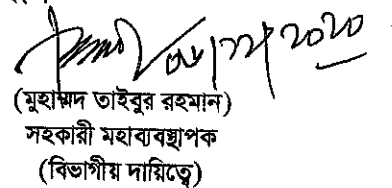 (মুহাম্মদ তাইবুর রহমান)
সহকারী মহাব্যবস্থাপক
(বিভাগীয় দায়িত্বে)